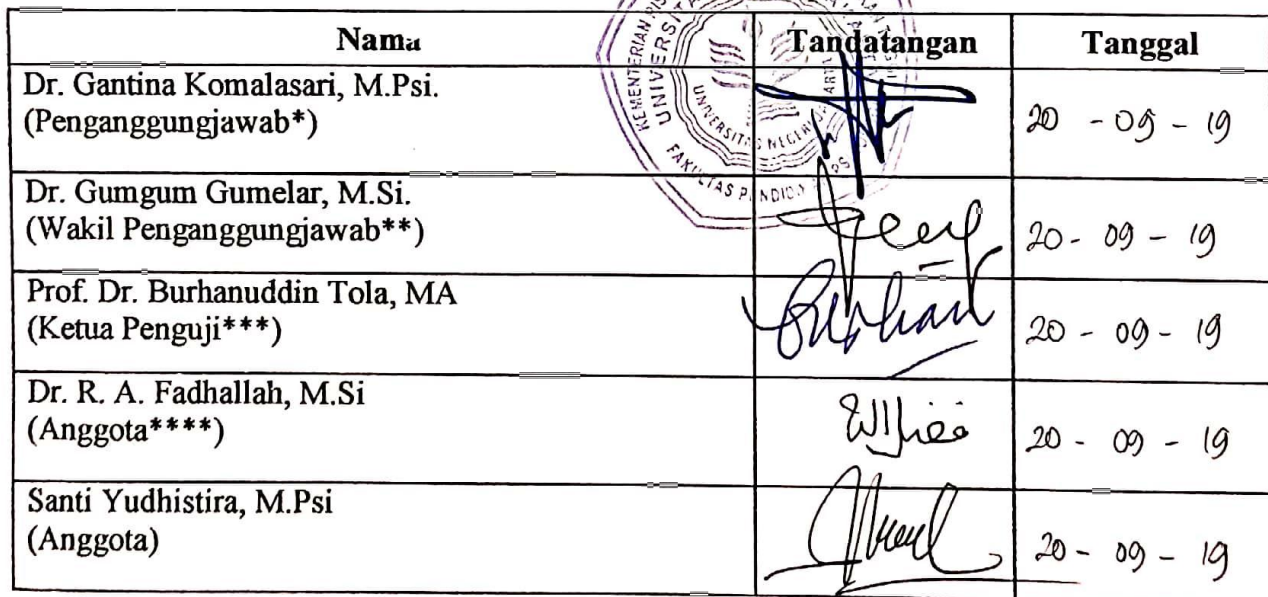 Nama Tandatangan Tanggal
Dr. Gantina Komalasari, M.Psi.
(Penganggungjawab*) 20 - 09 - 19
Dr. Gumgum Gumelar, M.Si.
(Wakil Penganggungjawab**) 20 - 09 - 19
Prof. Dr. Burhanuddin Tola, MA
(Ketua Penguji***) 20 - 09 - 19
Dr. R. A. Fadhallah, M.Si
(Anggota****) 20 - 09 - 19
Santi Yudhistira, M.Psi
(Anggota) 20 - 09 - 19
KEMENTERIAN
UNIVERSITA
UNIVERSITAS NEGERI
FAKULTAS